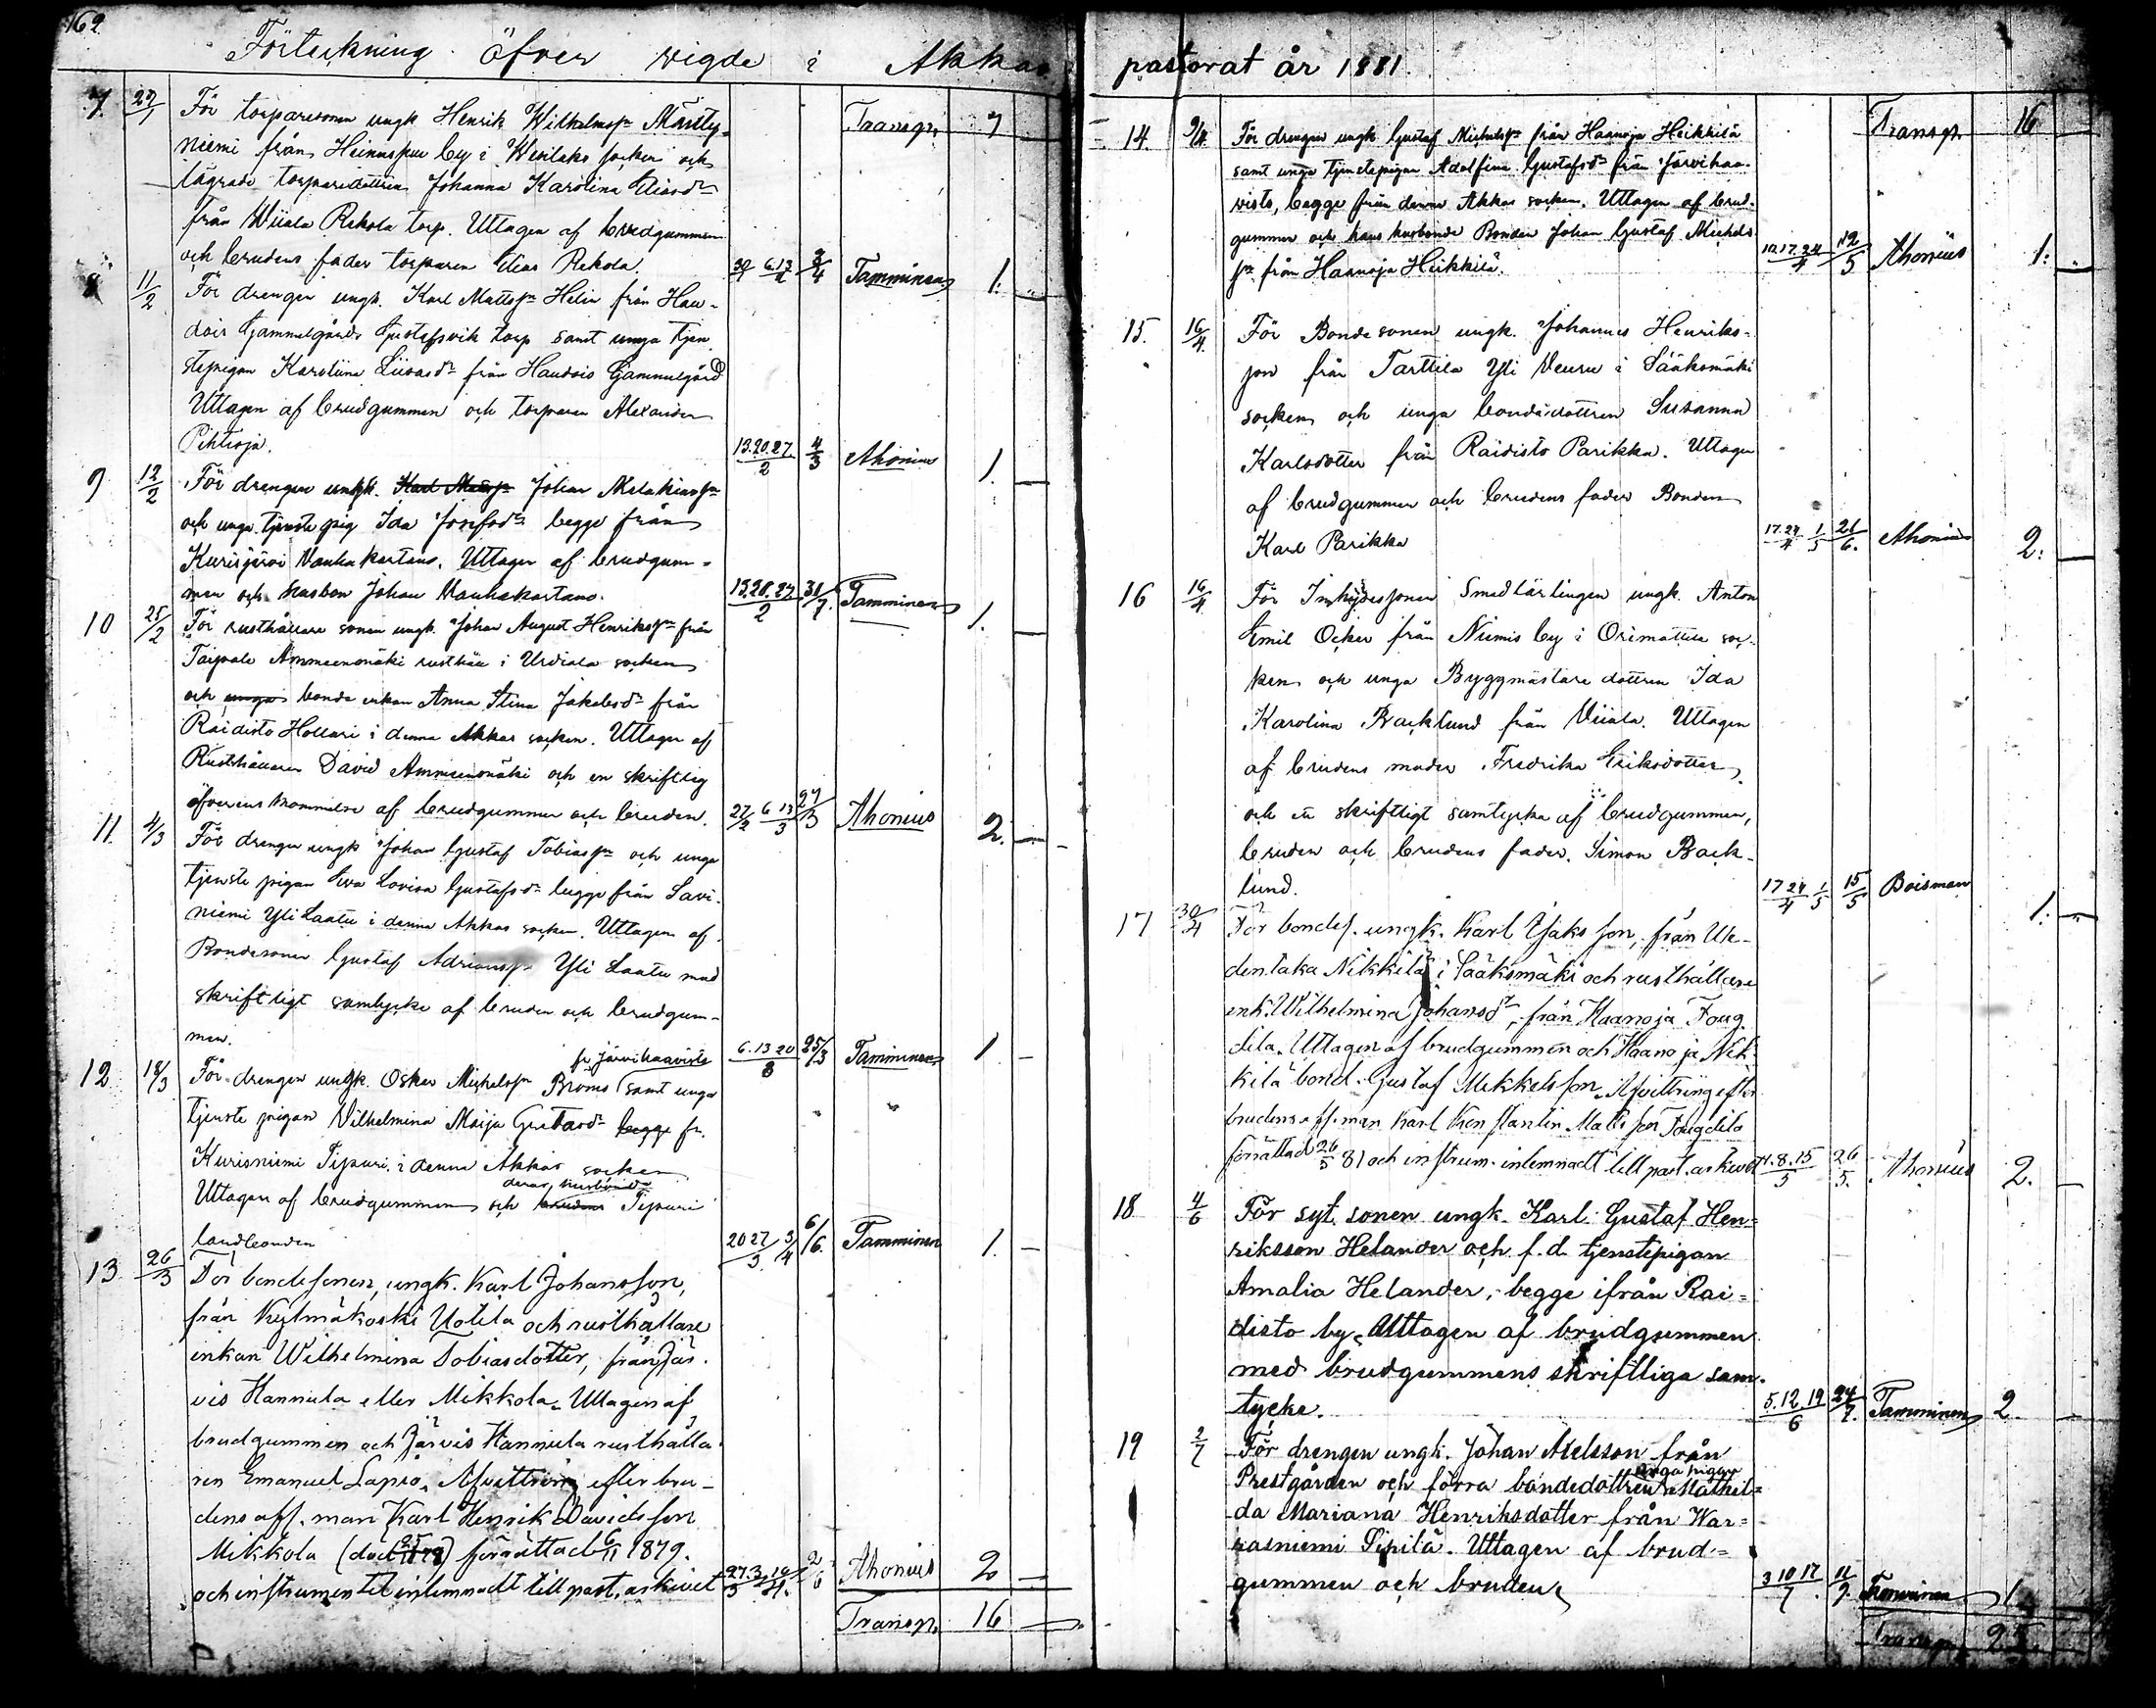 169.
Förteckning öfver vigde i Akkas pastorat år 1881.
7. 27/1 För torparesonen ungk. Henrik Wilhelmssn Mänty-
niemi från Heinuspuu by i Wesilaks socken och
lägrade torparedottren Johanna Karolina Eliasdr
från Wiiala Rekola torp. Uttagen af brudgummen
och brudens fader torparen Elias Rekola. 30/1 6.13/2 3/4 Tamminen 1.
Transp. 7
8 11/2 För drengen ungk. Karl Mattssn Helin från Hau-
dois Gammelgårds Gustafsvik torp samt unga tjen-
stepigan Karoliina Liisasdr från Haudois Gammelgård
Uttagen af brudgummen och torparen Alexander
Pihtioja. 13.20.27/2 4/3 Ahonius 1.
9 12/2 För drengen ungk. Karl Mattssn Johan Malakiassn
och unga tjenstepig Ida Josefsdr begge från
Kurisjärvi Vanhakartano. Uttagen af brudgum-
men och husbon Johan Vanhakartano. 13.20.27/2 31/7. Tamminen 1.
10 25/2 För rusthållare sonen ungk. Johan August Henrikssn från
Taipale Ammeenmäki rusthåll i Urdiala socken
och unga bonde enkan Anna Stina Jakobsdr från
Raidisto Hollari i denna Akkas socken. Uttagen af
Rusthållaren David Ammeenmäki och en skriftlig
öfverenskommelse af brudgummen och bruden. 27/2 6 13/3 27/3 Ahonius 2.
11. 4/3 För drengen ungk Johan Gustaf Tobiassn och unga
tjenste pigan Eva Lovisa Gustafsdr begge från Savi-
niemi Yli Laatu i denna Akkas socken. Uttagen af
Bondesonen Gustaf Adrianssn Yli Laatu med
skriftligt samtycke af bruden och brudgum-
men. 6.13 20/3 25/3 Tamminen 1
12 18/3 För drengen ungk. Oskar Michelssn Broms fr Järvihaavisto samt unga
tjenste pigan Vilhelmina Maija Gustavsdr begge fr.
Kurisniemi Tipuri i denna Akkas socken
Uttagen af brudgummen och brudens deras husbonde Tipuri
landbonden 20 27/3 3/4 6/6. Tamminen 1.
13 26/3 För bondesonen, ungk. Karl Johansson,
från Kylmäkoski Uotila och rusthållare
enkan Wilhelmina Tobiasdotter, från Jär-
vis Hannula eller Mikkola. Uttagen af
brudgummen och Järvis Hannula rusthålla-
ren Emanuel Lapio. Afvittring efter bru-
dens afl. man Karl Henrik Davidsson
Mikkola förrättad 6/11 1879.
och instrumentet inlemnadt till past. arkivet 27.3/3 10/4. 2/6 Ahonius 2
Transp. 16
14. 9/4. För drengen ungk Gustaf Michelssn från Haanoja Heikkilä
samt unga tjenstepigan Adolfina Gustafsdr från Järvihaa-
visto, begge från denna Akkas socken. Uttagen af brud-
gummen och hans husbonde Bonden Johan Gustaf Michels
sn från Haanoja Heikkilä. 10.17.24/4 12/5 Ahonius 1.
Transp. 16
15. 16/4. För Bonde sonen ungk. Johannes Henriks-
son från Tarttila Yli Veuru i Sääksmäki
socken och unga bondedottren Susanna
Karlsdotter från Raidisto Parikka. Uttagen
af brudgummen och brudens fader Bonden
Karl Parikka 17.24/4 1/5 26/6. Ahonius 2.
16 16/4 För Inhysessonen Smedlärlingen ungk. Anton
Emil Ocker från Niemis by i Orimattila soc-
ken och unga Byggmästare dottren Ida
Karolina Backlund från Viiala. Uttagen
af brudens moder Fredrika Eriksdotter
och ett skriftligt samtycke af brudgummen,
bruden och brudens fader. Simon Back-
lund. 17 24/4 1/5 15/5 Boisman 1.
17 30/4 För bondes. ungk. Karl Isaksson, från Ui-
dentaka Nikkilä i Sääksmäki och rusthållare
enk. Wilhelmina Johansdr, från Haanoja Foug-
dila. Uttagen af brudgummen och Haanoja Nik-
kilä bond. Gustaf Mikkelsson. Afvittring efter
brudens afl. man Karl Konstantin Matisson Fougdila
förrättad 26/5 81 och instrum. inlemnadt till past. arkivet 1.8.15/5 26/5. Ahonius 2.
18 4/6 För syt. sonen ungk. Karl Gustaf Hen-
riksson Helander och f.d. tjenstepigan
Amalia Helander, begge ifrån Rai-
disto by. Uttagen af brudgummen
med brudgummens skriftliga sam-
tycke. 5.12.19/6 24/7. Tamminen 2.
19 2/7 För drengen ungk. Johan Axelsson från
Prestgården och förra bondedottren unga pigan Mathil-
da Mariana Henriksdotter från War-
rasniemi Sipilä. Uttagen af brud-
gummen och bruden 3 10 17/7 11/9. Tamminen 1
Transp. 25